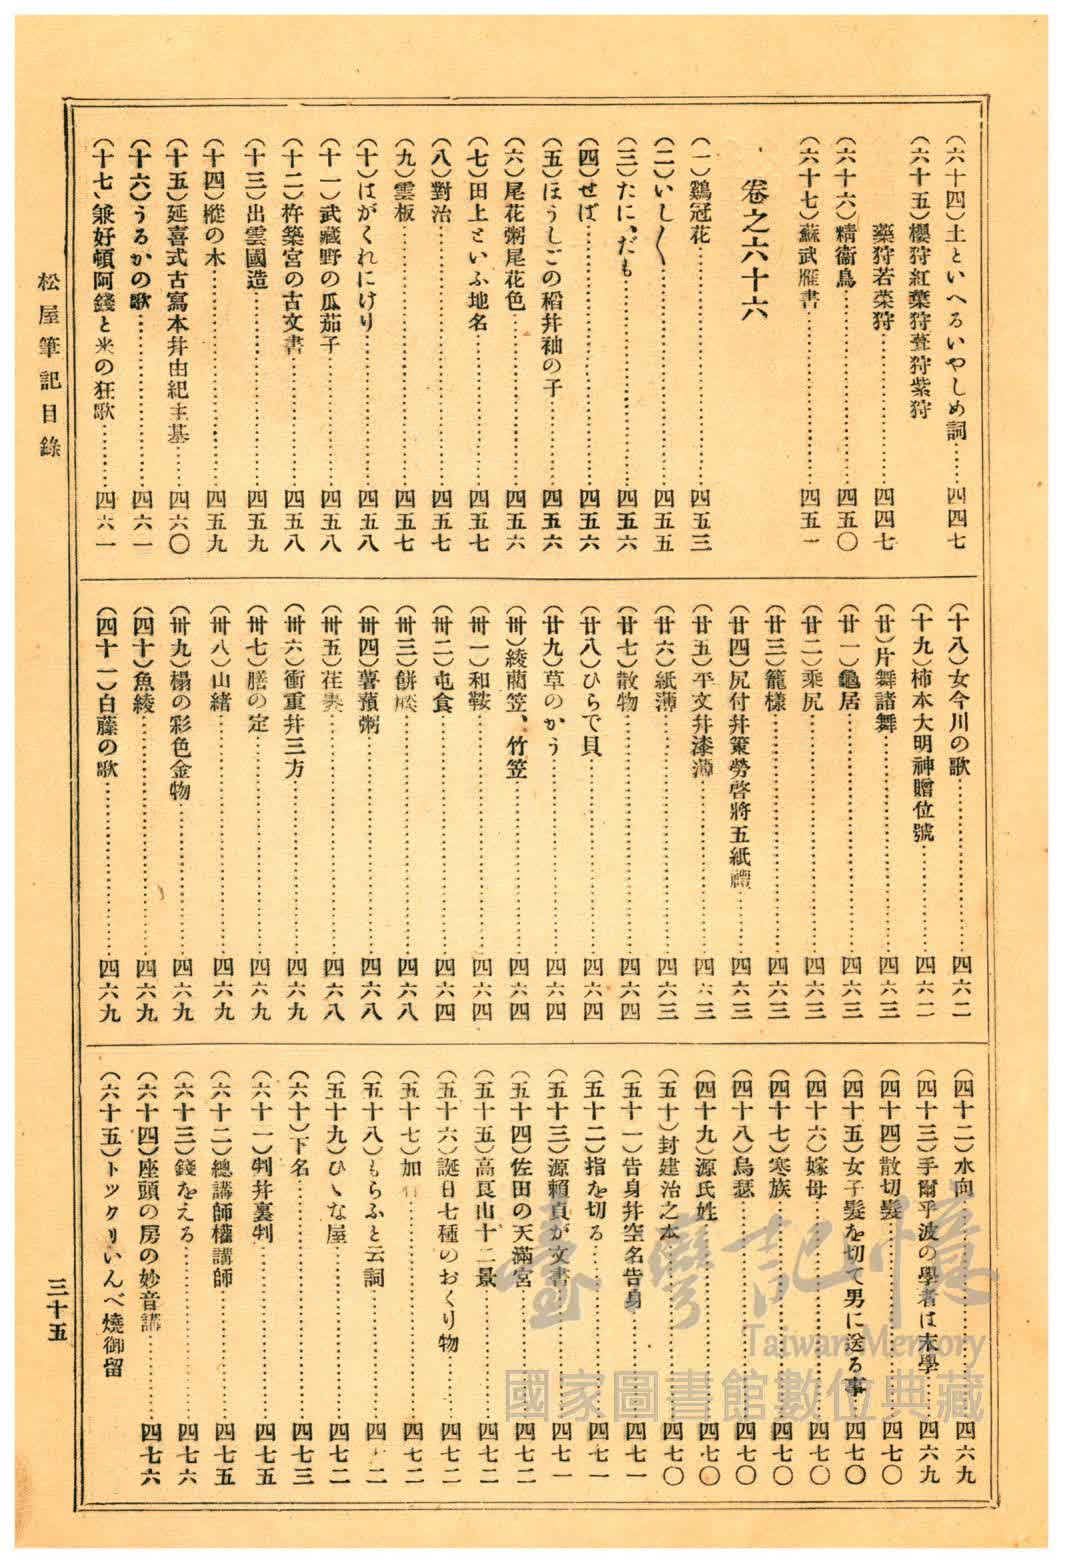 (六十四)土といへるいやしめ詞……四四七
(六十五)櫻狩紅葉狩茸狩紫狩
藥狩若菜狩……四四七
(六十六)精衞鳥……四五〇
(六十七)蘇武雁書……四五一
卷之六十六
(一)鷄冠花……四五三
(二)いし〳〵……四五五
(三)たに、だも……四五六
(四)せば……四五六
(五)ほうしごの稻幷袖の子……四五六
(六)尾花粥尾花色……四五六
(七)田上といふ地名……四五七
(八)對治……四五七
(九)雲板……四五七
(十)はがくれにけり……四五八
(十一)武藏野の瓜茄子……四五八
(十二)杵築宮の古文書……四五八
(十三)出雲國造……四五九
(十四)樅の木……四五九
(十五)延喜式古寫本幷由紀主基……四六〇
(十六)うるかの歌……四六一
(十七)兼好頓阿錢と米の狂歌……四六一
(十八)女今川の歌……四六二
(十九)柿本大明神贈位號……四六二
(廿)片舞諸舞……四六三
(廿一)龜居……四六三
(廿二)乘尻……四六三
(廿三)籠樣……四六三
(廿四)尻付幷策勞啓將五紙禮……四六三
(廿五)平文幷漆薄……四六三
(廿六)紙薄……四六三
(廿七)散物……四六四
(廿八)ひらで貝……四六四
(廿九)草のかう……四六四
(卅)綾藺笠、竹笠……四六四
(卅一)和鞍……四六四
(卅二)屯食……四六四
(卅三)餅……四六八
(卅四)薯蕷粥……四六八
(卅五)荏裹……四六八
(卅六)衝重幷三方……四六九
(卅七)膳の定……四六九
(卅八)山緒……四六九
(卅九)榻の彩色金物……四六九
(四十)魚綾……四六九
(四十一)白藤の歌……四六九
(四十二)水向……四六九
(四十三)手爾乎波の學者は末學……四六九
(四十四)散切髮……四七〇
(四十五)女子髮を切て男に送る事……四七〇
(四十六)嫁母……四七〇
(四十七)寒族……四七〇
(四十八)烏瑟……四七〇
(四十九)源氏姓……四七〇
(五十)封建治之本……四七〇
(五十一)告身幷空名告身……四七一
(五十二)指を切る……四七一
(五十三)源賴貞が文書……四七一
(五十四)佐田の天滿宮……四七二
(五十五)高良山十二景……四七二
(五十六)誕日七種のおくり物……四七二
(五十七)加……四七二
(五十八)もらふと云詞……四七二
(五十九)ひゝな屋……四七二
(六十)下名……四七三
(六十一)判幷裏判……四七五
(六十二)總講師權講師……四七五
(六十三)錢をえる……四七六
(六十四)座頭の房の妙音講……四七六
(六十五)トックリいんべ燒御留
松屋筆記目錄
三十五
臺灣記憶
Taiwan Memory
國家圖書館數位典藏